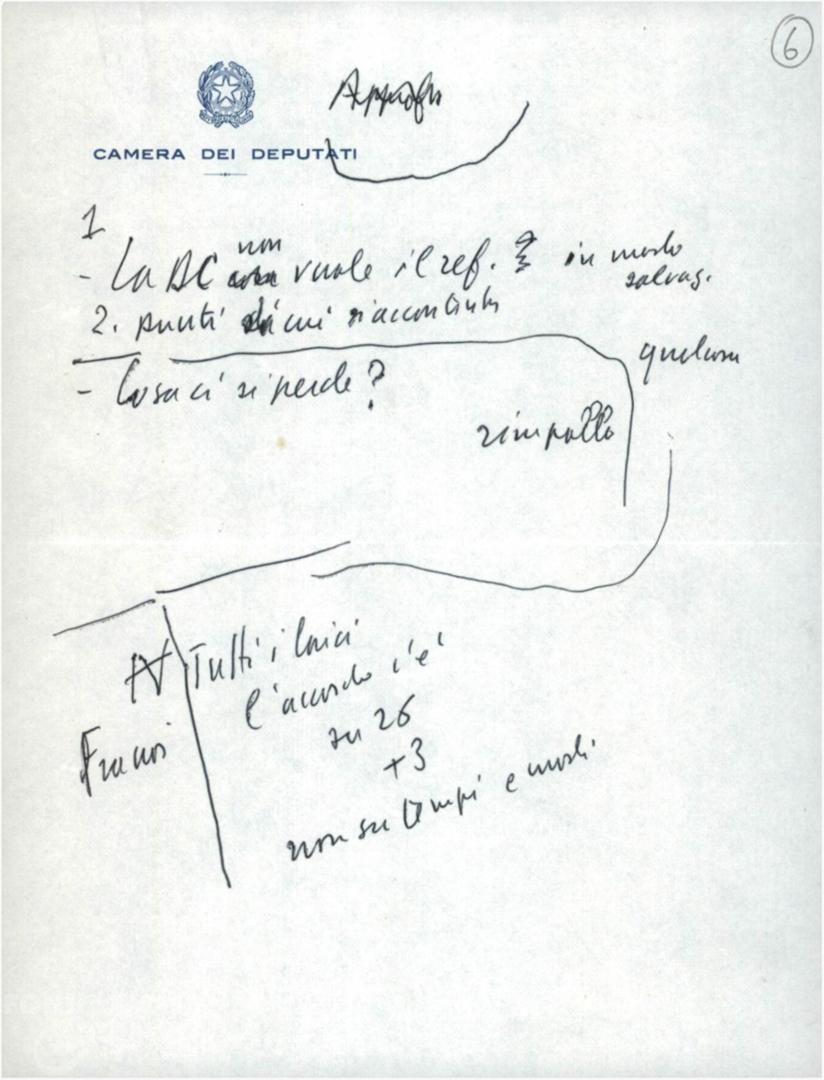 6
CAMERA DEI DEPUTATI
1
- La DC non vuole il ref. in modo
2. punti di cui si accontenta
qualcosa
- Cosa ci si perde?
rimpallo
Tutti i laici
l'accordo c'è
su 26
+3
non su tempi e modi.